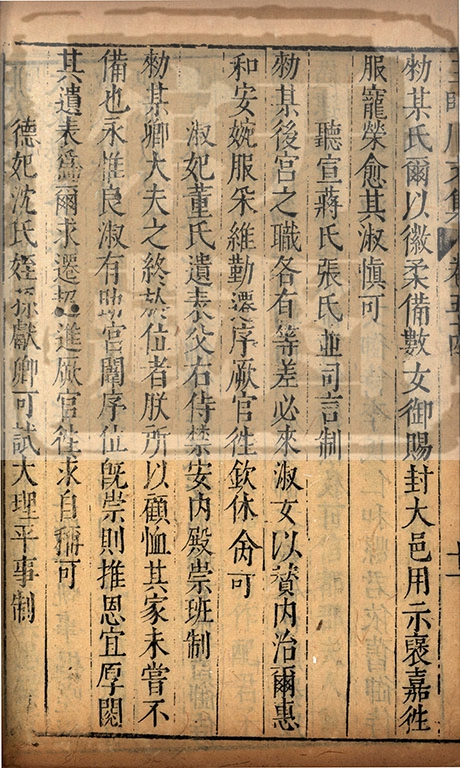 王臨川文集 卷五十四 十一
勑某氏爾以徽柔備數女御賜封大邑用示褒嘉徃
服寵榮愈其淑慎可
聽宣蔣氏張氏並司言制
勑某後宮之職各有等差必求淑女以賛內治爾惠
和安婉服采維勤遷序厥官徃欽休命可
淑妃董氏遺表父右侍禁安內殿崇班制
勑某卿大夫之終於位者朕所以顧恤其家未嘗不
備也永惟良淑有助宮闈序位旣崇則推恩宜厚閱
其遺表爲爾求遷進厥官徃求自稱可
德妃沈氏姪孫獻卿可試大理平事制